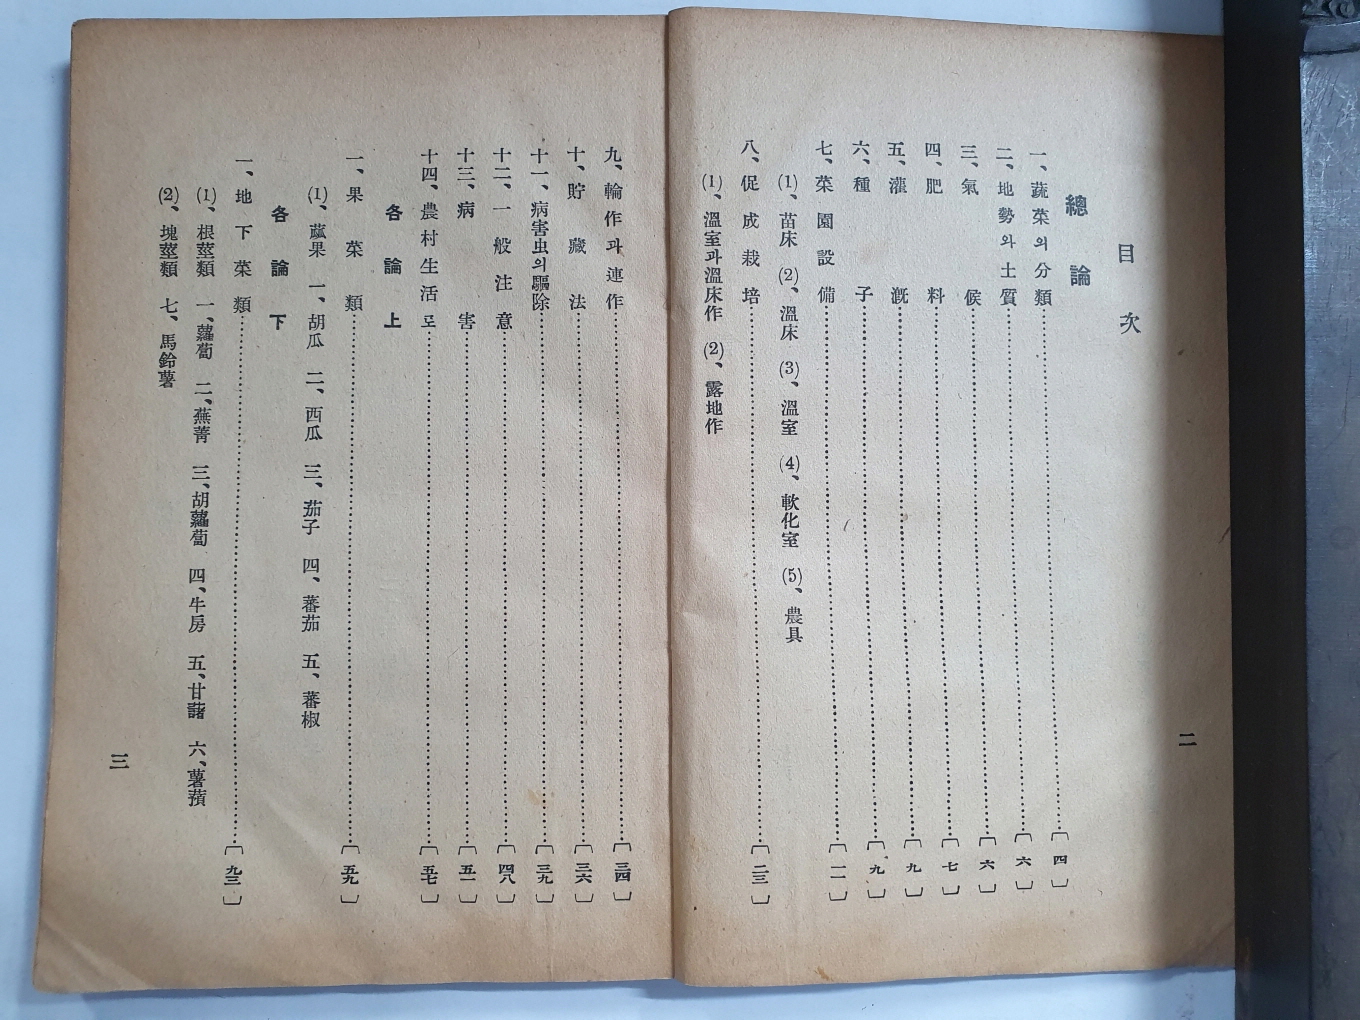 目次
總論
一、蔬菜의分類〔四〕
二、地勢와土質〔六〕
三、氣候〔六〕
四、肥料〔七〕
五、灌漑〔九〕
六、種子〔九〕
七、菜園設備〔一一〕
(1)、苗床 (2)、溫床 (3)、溫室 (4)、軟化室 (5)、農具
八、促成栽培〔二三〕
(1)、溫室과溫床作 (2)、露地作
二
九、輪作과連作〔三四〕
十、貯藏法〔三六〕
十一、病害虫의驅除〔三九〕
十二、一般注意〔四八〕
十三、病害〔五一〕
十四、農村生活로〔五七〕
各論上
一、果菜類〔五九〕
(1)、蓏果 一、胡瓜 二、西瓜 三、茄子 四、蕃茄 五、蕃椒
各論下
一、地下菜類〔九三〕
(1)、根莖類 一、蘿蔔 二、蕪菁 三、胡蘿蔔 四、牛房 五、甘藷 六、薯蕷
(2)、塊莖類 七、馬鈴薯
三